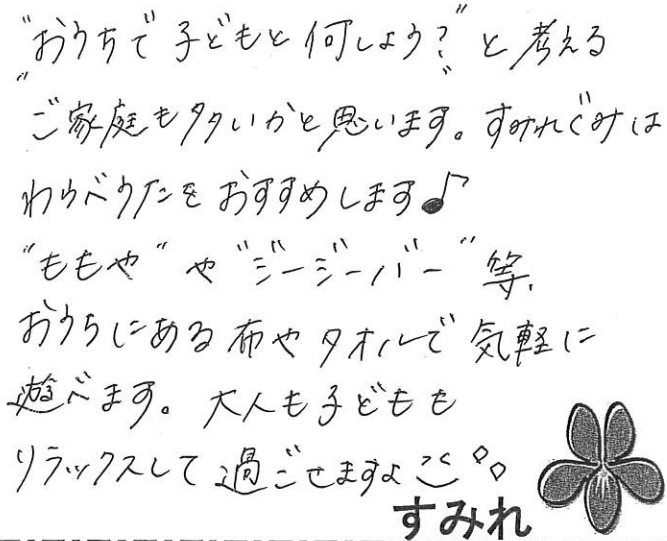 "おうちで子どもと何しよう?"と考える
ご家庭も多いかと思います。すみれぐみは
わらべうたをおすすめします♪
"ももや"や"ジージーバー"等、
おうちにある布やタオルで気軽に
遊べます。大人も子どもも
リラックスして過ごせますよ
すみれ